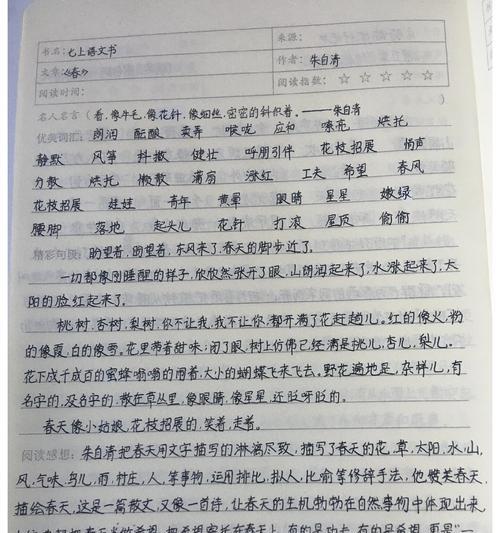 书名：七上语文书 来源：
文章：《春》 作者：朱自清
阅读时间： 阅读指数：☆ ☆ ☆ ☆ ☆
名人名言（看，像牛毛，像花针，像细丝，密密的斜织着。——朱自清 ）
优美词汇：朗润 酝酿 卖弄 喉咙 应和 嘹亮 烘托
静默 风筝 抖擞 健壮 呼朋引伴 花枝招展
分散 烘托 懒散 蒲扇 涨红 工夫 希望 春风
花枝招展 娃娃 青年 黄晕 眼睛 星星 嫩绿
腰脚 落地 起头儿 花针 打滚 屋顶 偷偷
精彩句段：盼望着，盼望着，东风来了，春天的脚步近了。
一切都像刚睡醒的样子，欣欣然张开了眼，山朗润起来了，水涨起来了，太
阳的脸红起来了。
桃树，杏树，梨树，你不让我，我不让你，都开满了花赶趟儿。红的像火，粉
的像霞，白的像雪。花里带着甜味；闭了眼，树上仿佛已经满是桃儿，杏儿，梨儿。
花下成千成百的蜜蜂嗡嗡的闹着，大小的蝴蝶飞来飞去。野花遍地是，杂样儿，有
名字的，没名字的，散在草丛里，像眼睛，像星星，还眨呀眨的。
春天像小姑娘，花枝招展的，笑着，走着。
阅读感想：朱自清把春天用文字描写的淋漓尽致，描写了春天的花，草，太阳，水，山，
风，气味，鸟儿，雨，村庄，人，等事物，运用排比，拟人，比喻等修辞手法，他赞美春天，
描绘春天，这是一篇散文，又像一首诗，让春天的生机物物在自然事物中体现出来，